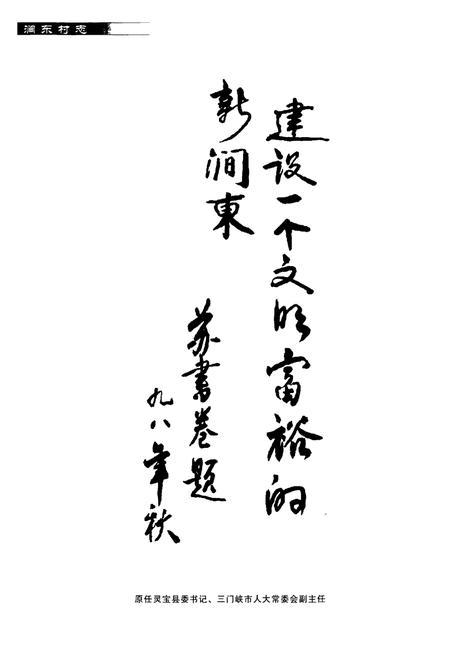 涧东村志
建设一个文明富裕的
新涧東
苏书卷题
九八年秋
原任灵宝县委书记、三门峡市人大常委会副主任